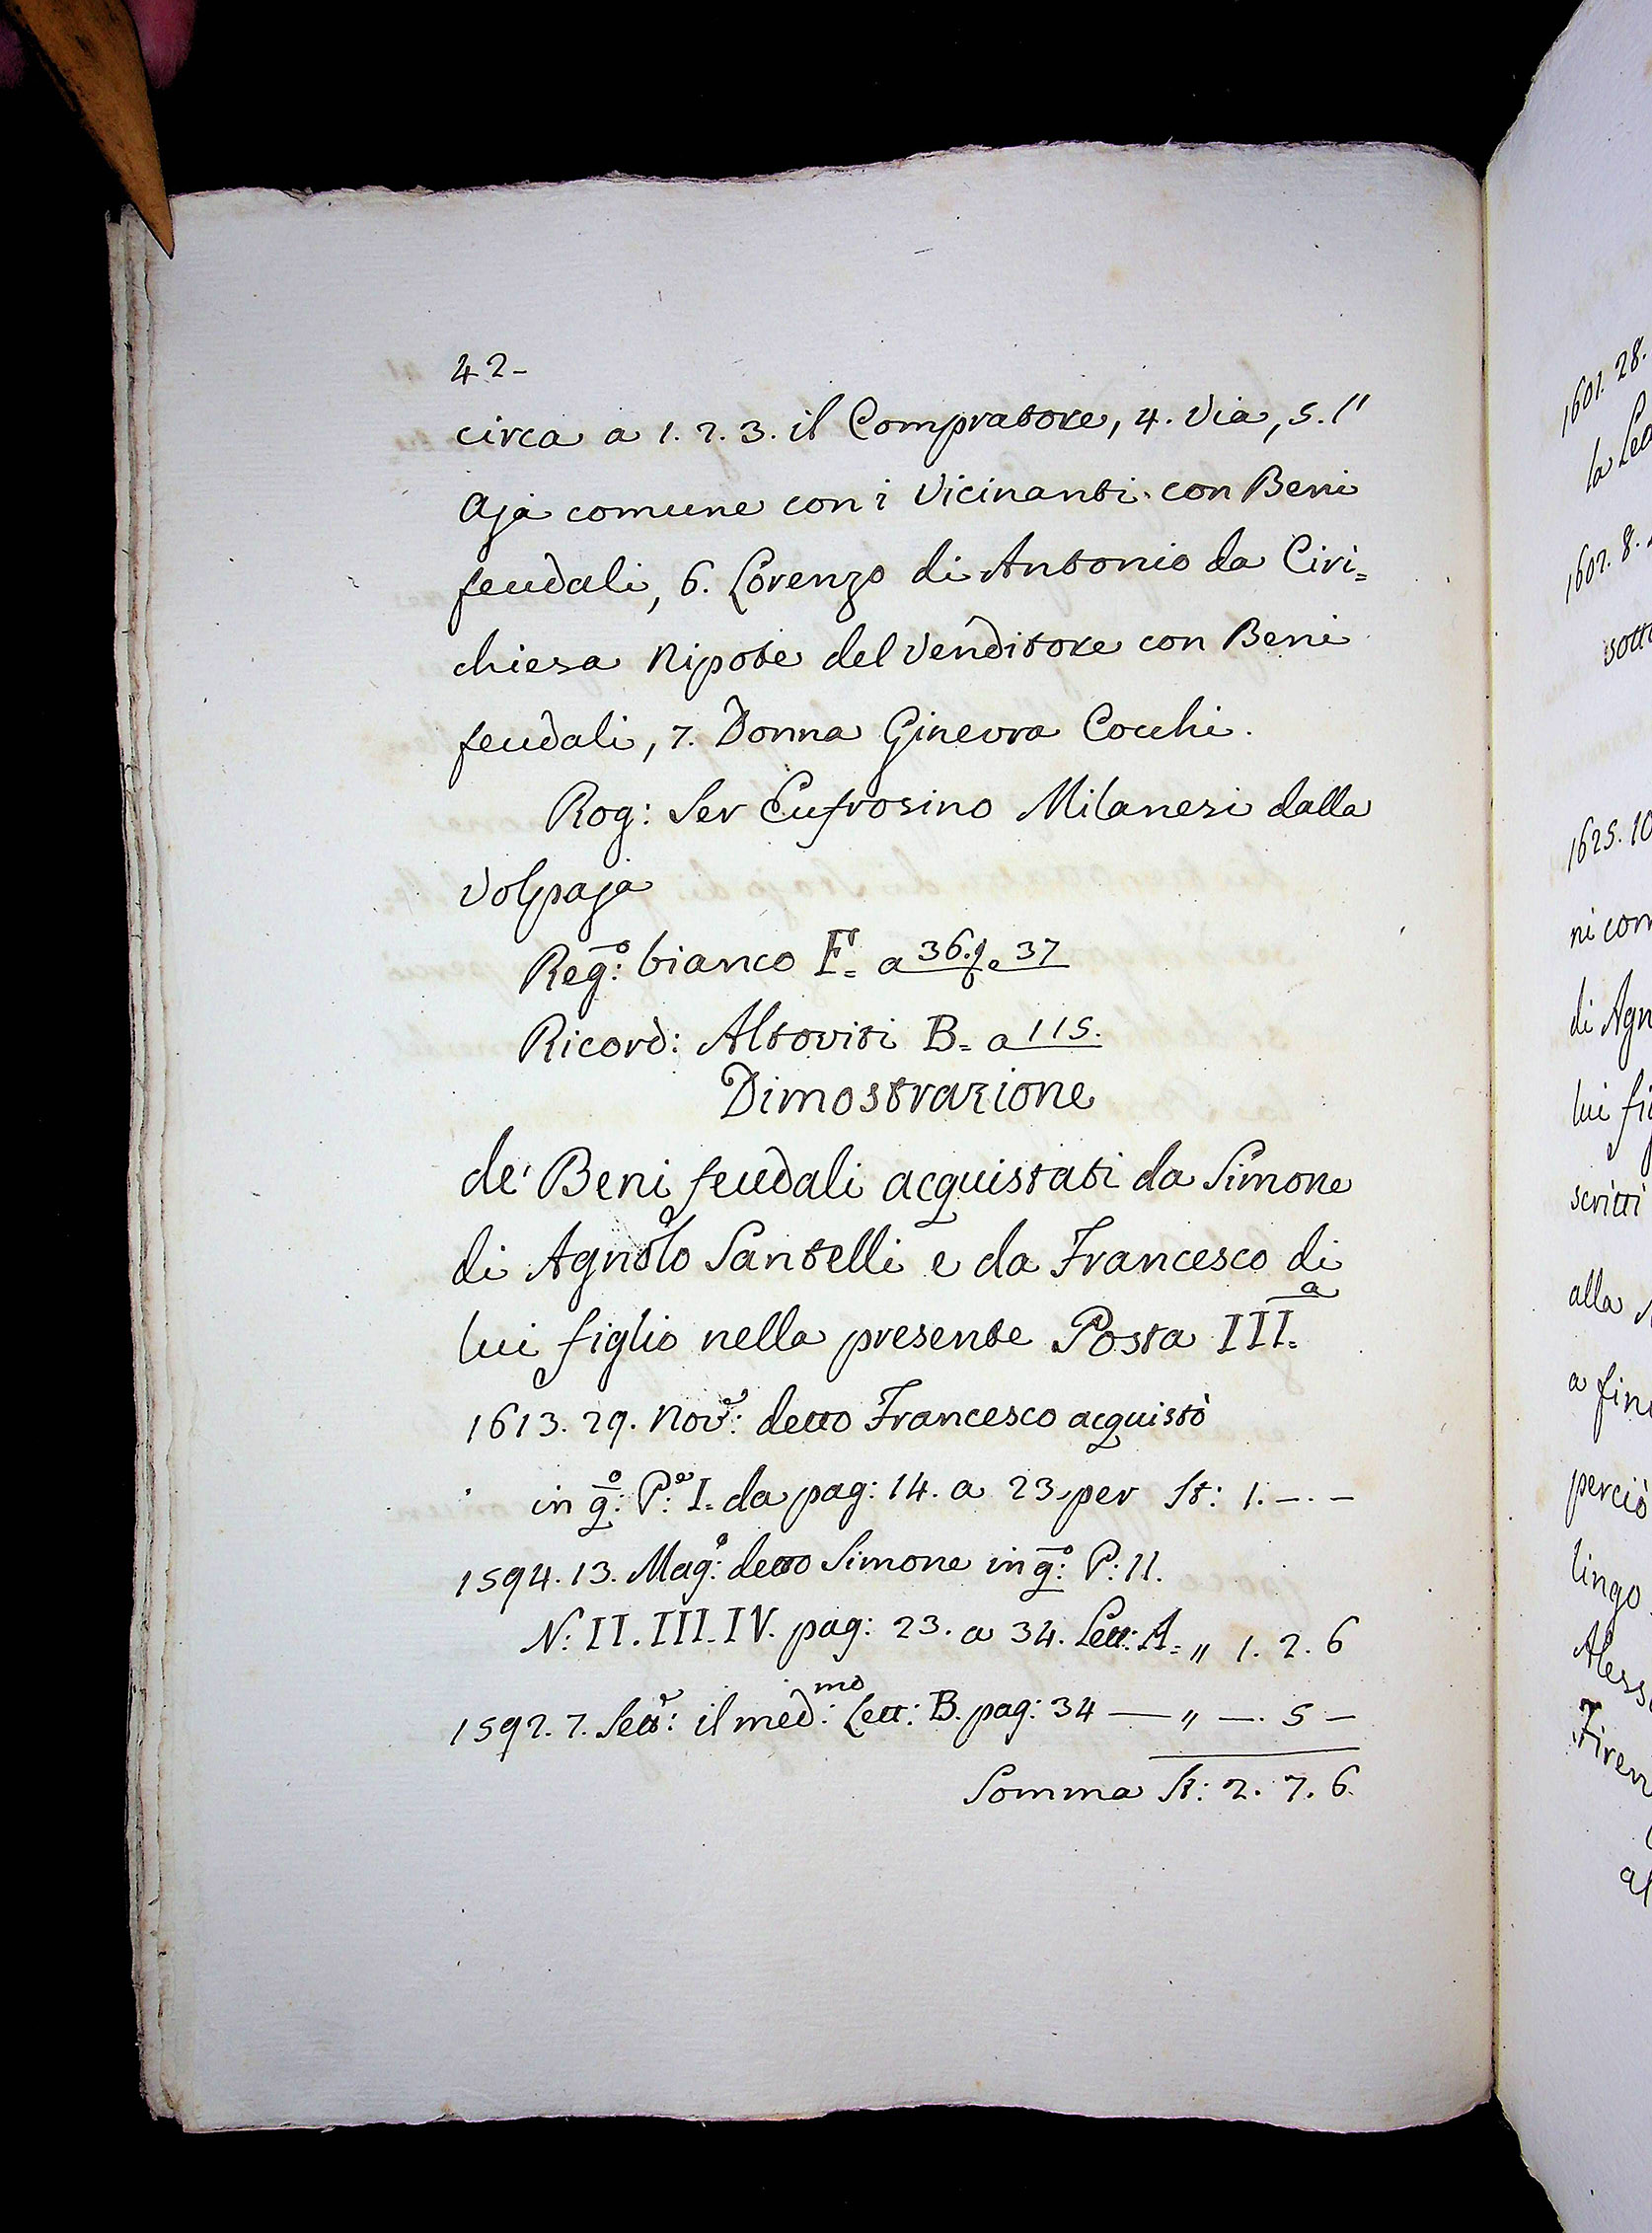 42-
circa a 1. 2. 3. il Compratore, 4. Via, 5. l'
Aja comune con i Vicinanti con Beni
feudali, 6. Lorenzo di Antonio da Ciri=
chiesa Nipote del Venditore con Beni
feudali, 7. Donna Ginevra Cocchi.
Rog: Ser Eufrosino Milanesi dalla
Volpaja
Reg:o bianco F= a 36. e 37
Ricord: Altoviti B= a 115.
Dimostrazione
de' Beni feudali acquistati da Simone
di Agnolo Santelli e da Francesco di
lui figlio nella presente Posta III=a
1613. 29. Nov:e detto Francesco acquistò
in q:o P:e I= da pag: 14. a 23 per St: 1. -. -
1594. 13. Mag:o detto Simone in q:o P: II.
N: II. III. IV. pag: 23. a 34. Lett: A= " 1. 2. 6
1592. 7. Sett:e il med:mo Lett: B. pag: 34 — " —. 5 —
Somma St: 2. 7. 6.
1601. 28.
1602. 8.
sotto
1625. 10
di Agn
lui fig
scritti
alla
a fine
perciò
lingo
Aless
Firen
al